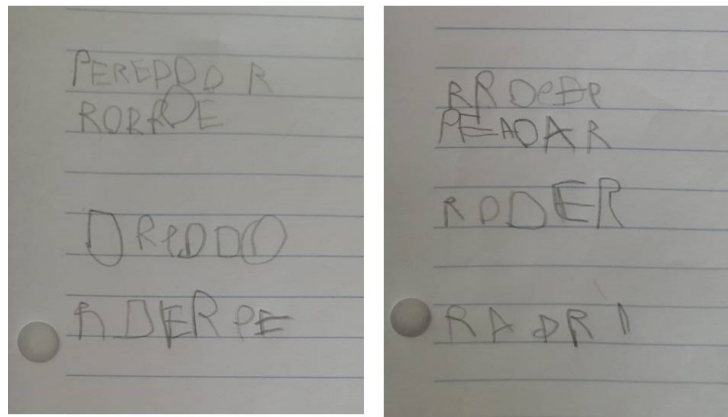 PEREPDD R
RORROE
DREDDO
RDERPE
RRDEEP
PEADAR
RDDER
RADRI